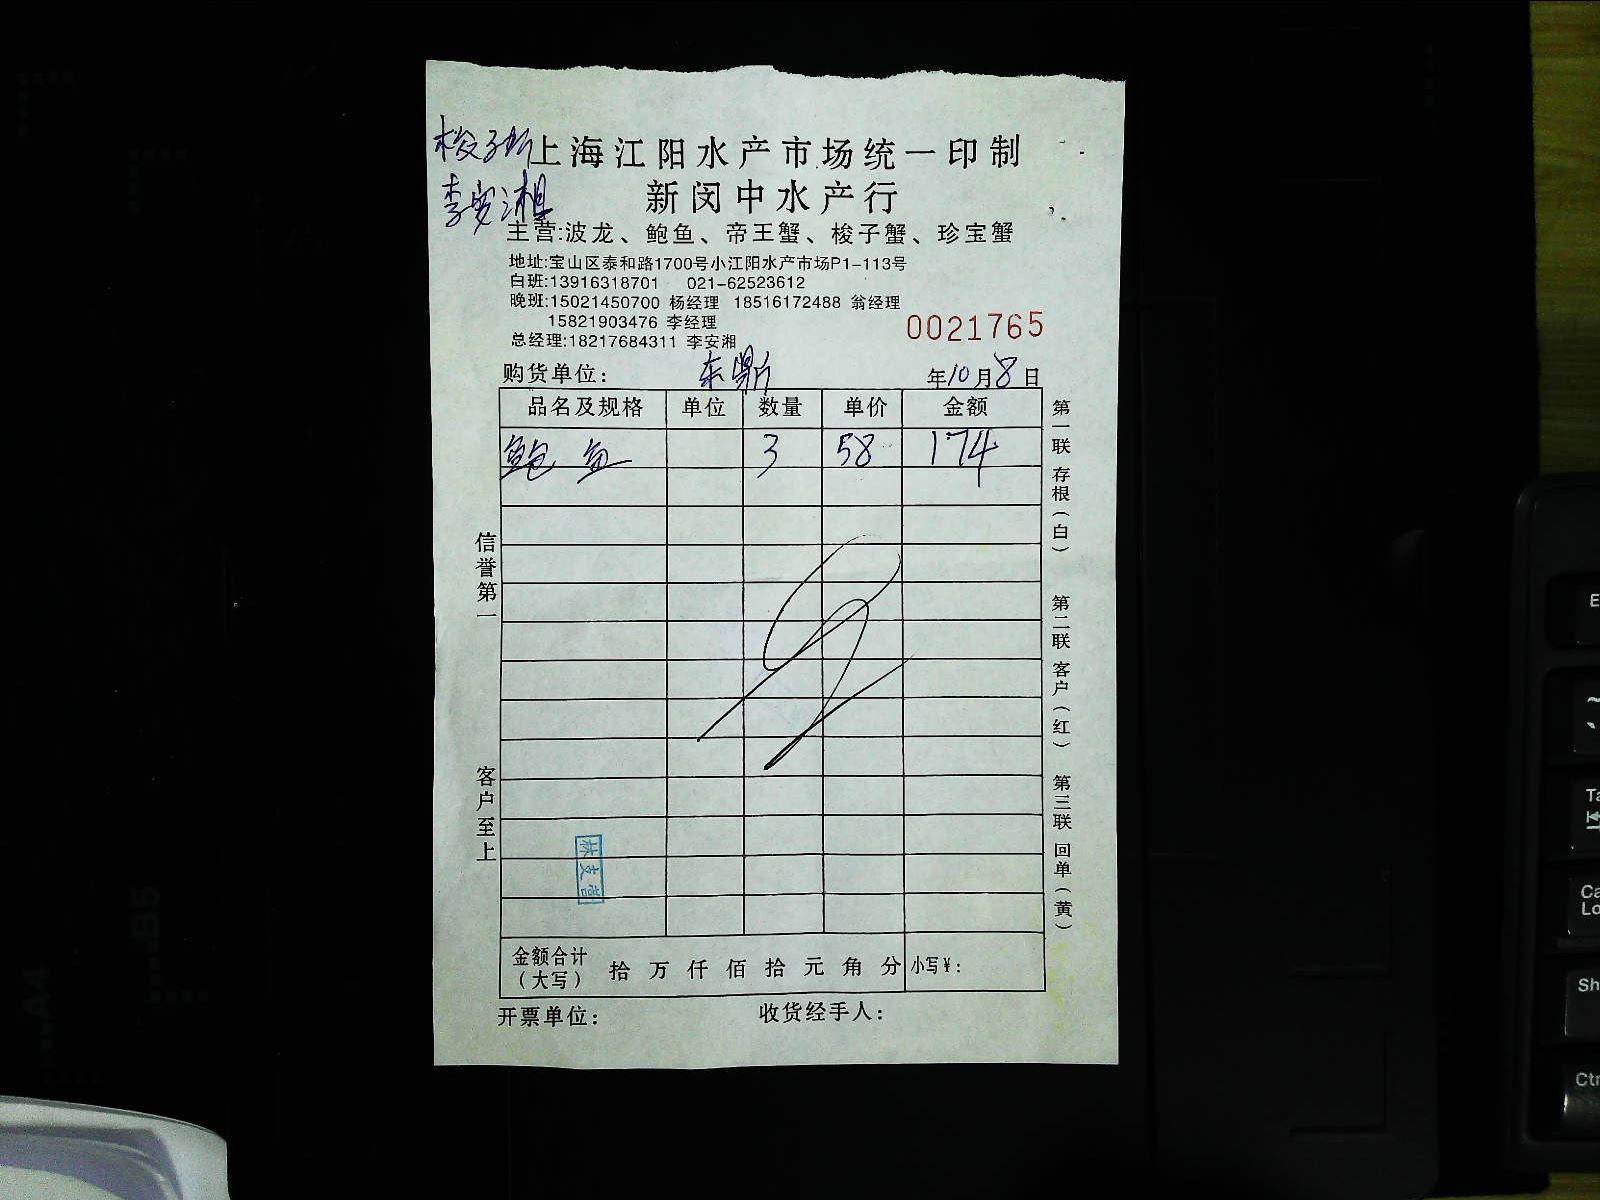 上海江阳水产市场统一印制
李安湘
新闵中水产行
主营:波龙、鲍鱼、帝王蟹、梭子蟹、珍宝蟹
地址:宝山区泰和路1700号小江阳水产市场P1-113号
白班:13916318701 021-62523612
晚班:15021450700 杨经理 18516172488 翁经理
15821903476 李经理
0021765
总经理:18217684311 李安湘
购货单位: 东 年10月8日
品名及规格 单位 数量 单价 金额
鲍鱼 3 58 174
金额合计(大写) 拾 万 仟 佰 拾 元 角 分 小写¥:
开票单位: 收货经手人:
信誉第一
客户至上
第一联 存根(白)
第二联 客户(红)
第三联 回单(黄)